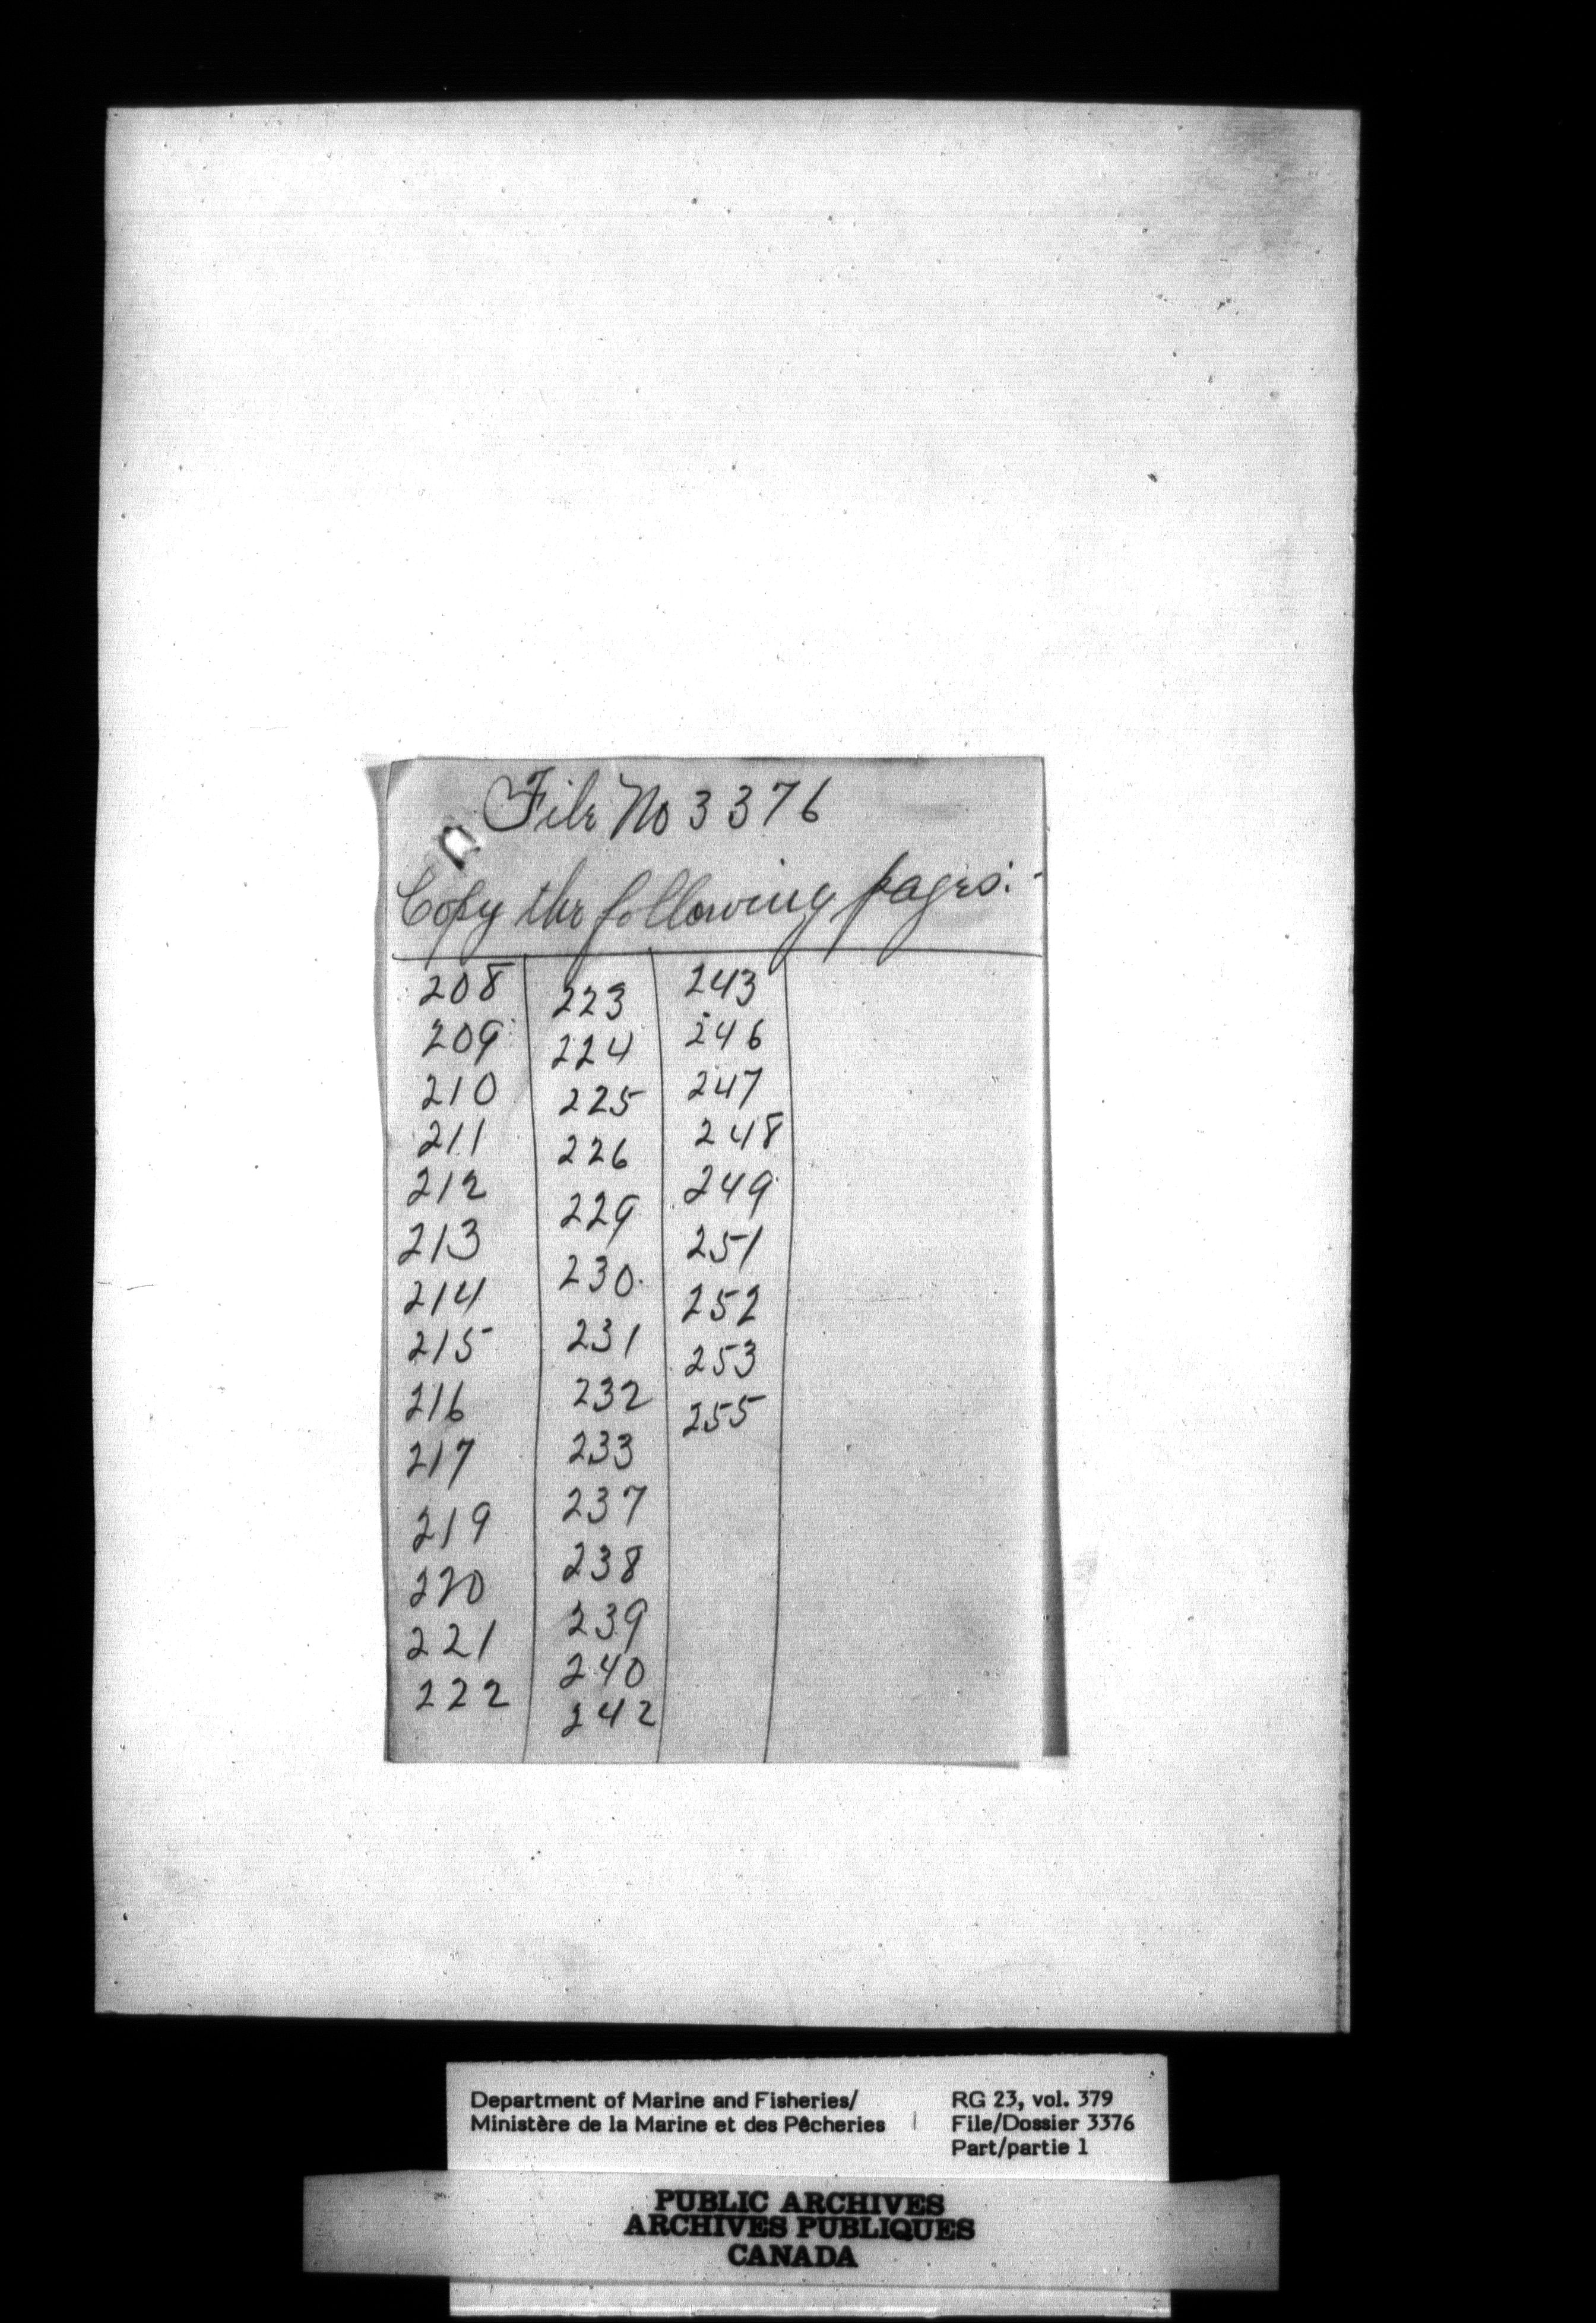 File No 3376
Copy the following pages:-
208 223 243
209 224 246
210 225 247
211 226 248
212 229 249
213 230 251
214 231 252
215 232 253
216 233 255
217 237
219 238
220 239
221 240
222 242
Department of Marine and Fisheries/
Ministère de la Marine et des Pêcheries
RG 23, vol. 379
File/Dossier 3376
Part/partie 1
PUBLIC ARCHIVES
ARCHIVES PUBLIQUES
CANADA